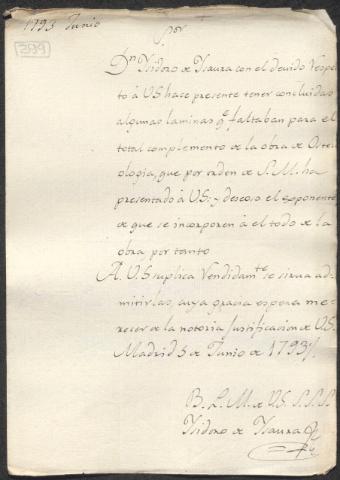 1793 Junio
299
Sor
Dn Isidoro de Isaura con el devido respe
to â VS hace presente tener concluidas
algunas laminas qe. faltaban para el
total complemento de la obra de Osteo
ologia, que por orden de S. M. ha
presentado â VS. y deseoso el exponente
de que se incorporen â el todo de la
obra por tanto
A. VS suplica Rendidamte. se sirva ad
mitirlas, cuya gracia espera me
recer de la notoria Justificacion de VS.
Madrid 5 de Junio de 1793
B. L. M. de VS. S. S. S.
Isidoro de Isaura